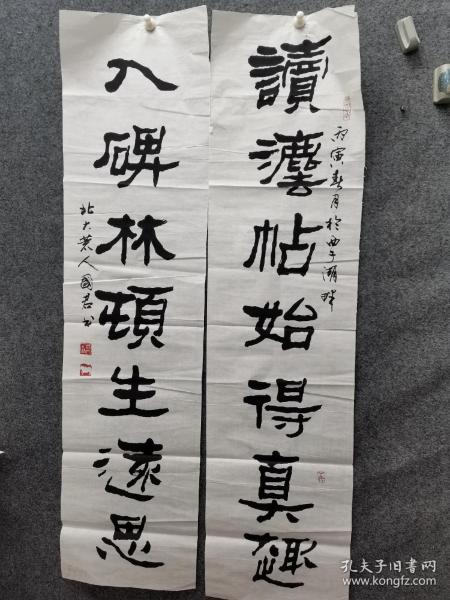 讀灋帖始得真趣
丙寅春月於西子湖畔
入碑林頓生遠思
北大荒人國君书
孔夫子旧书网
www.kongfz.com